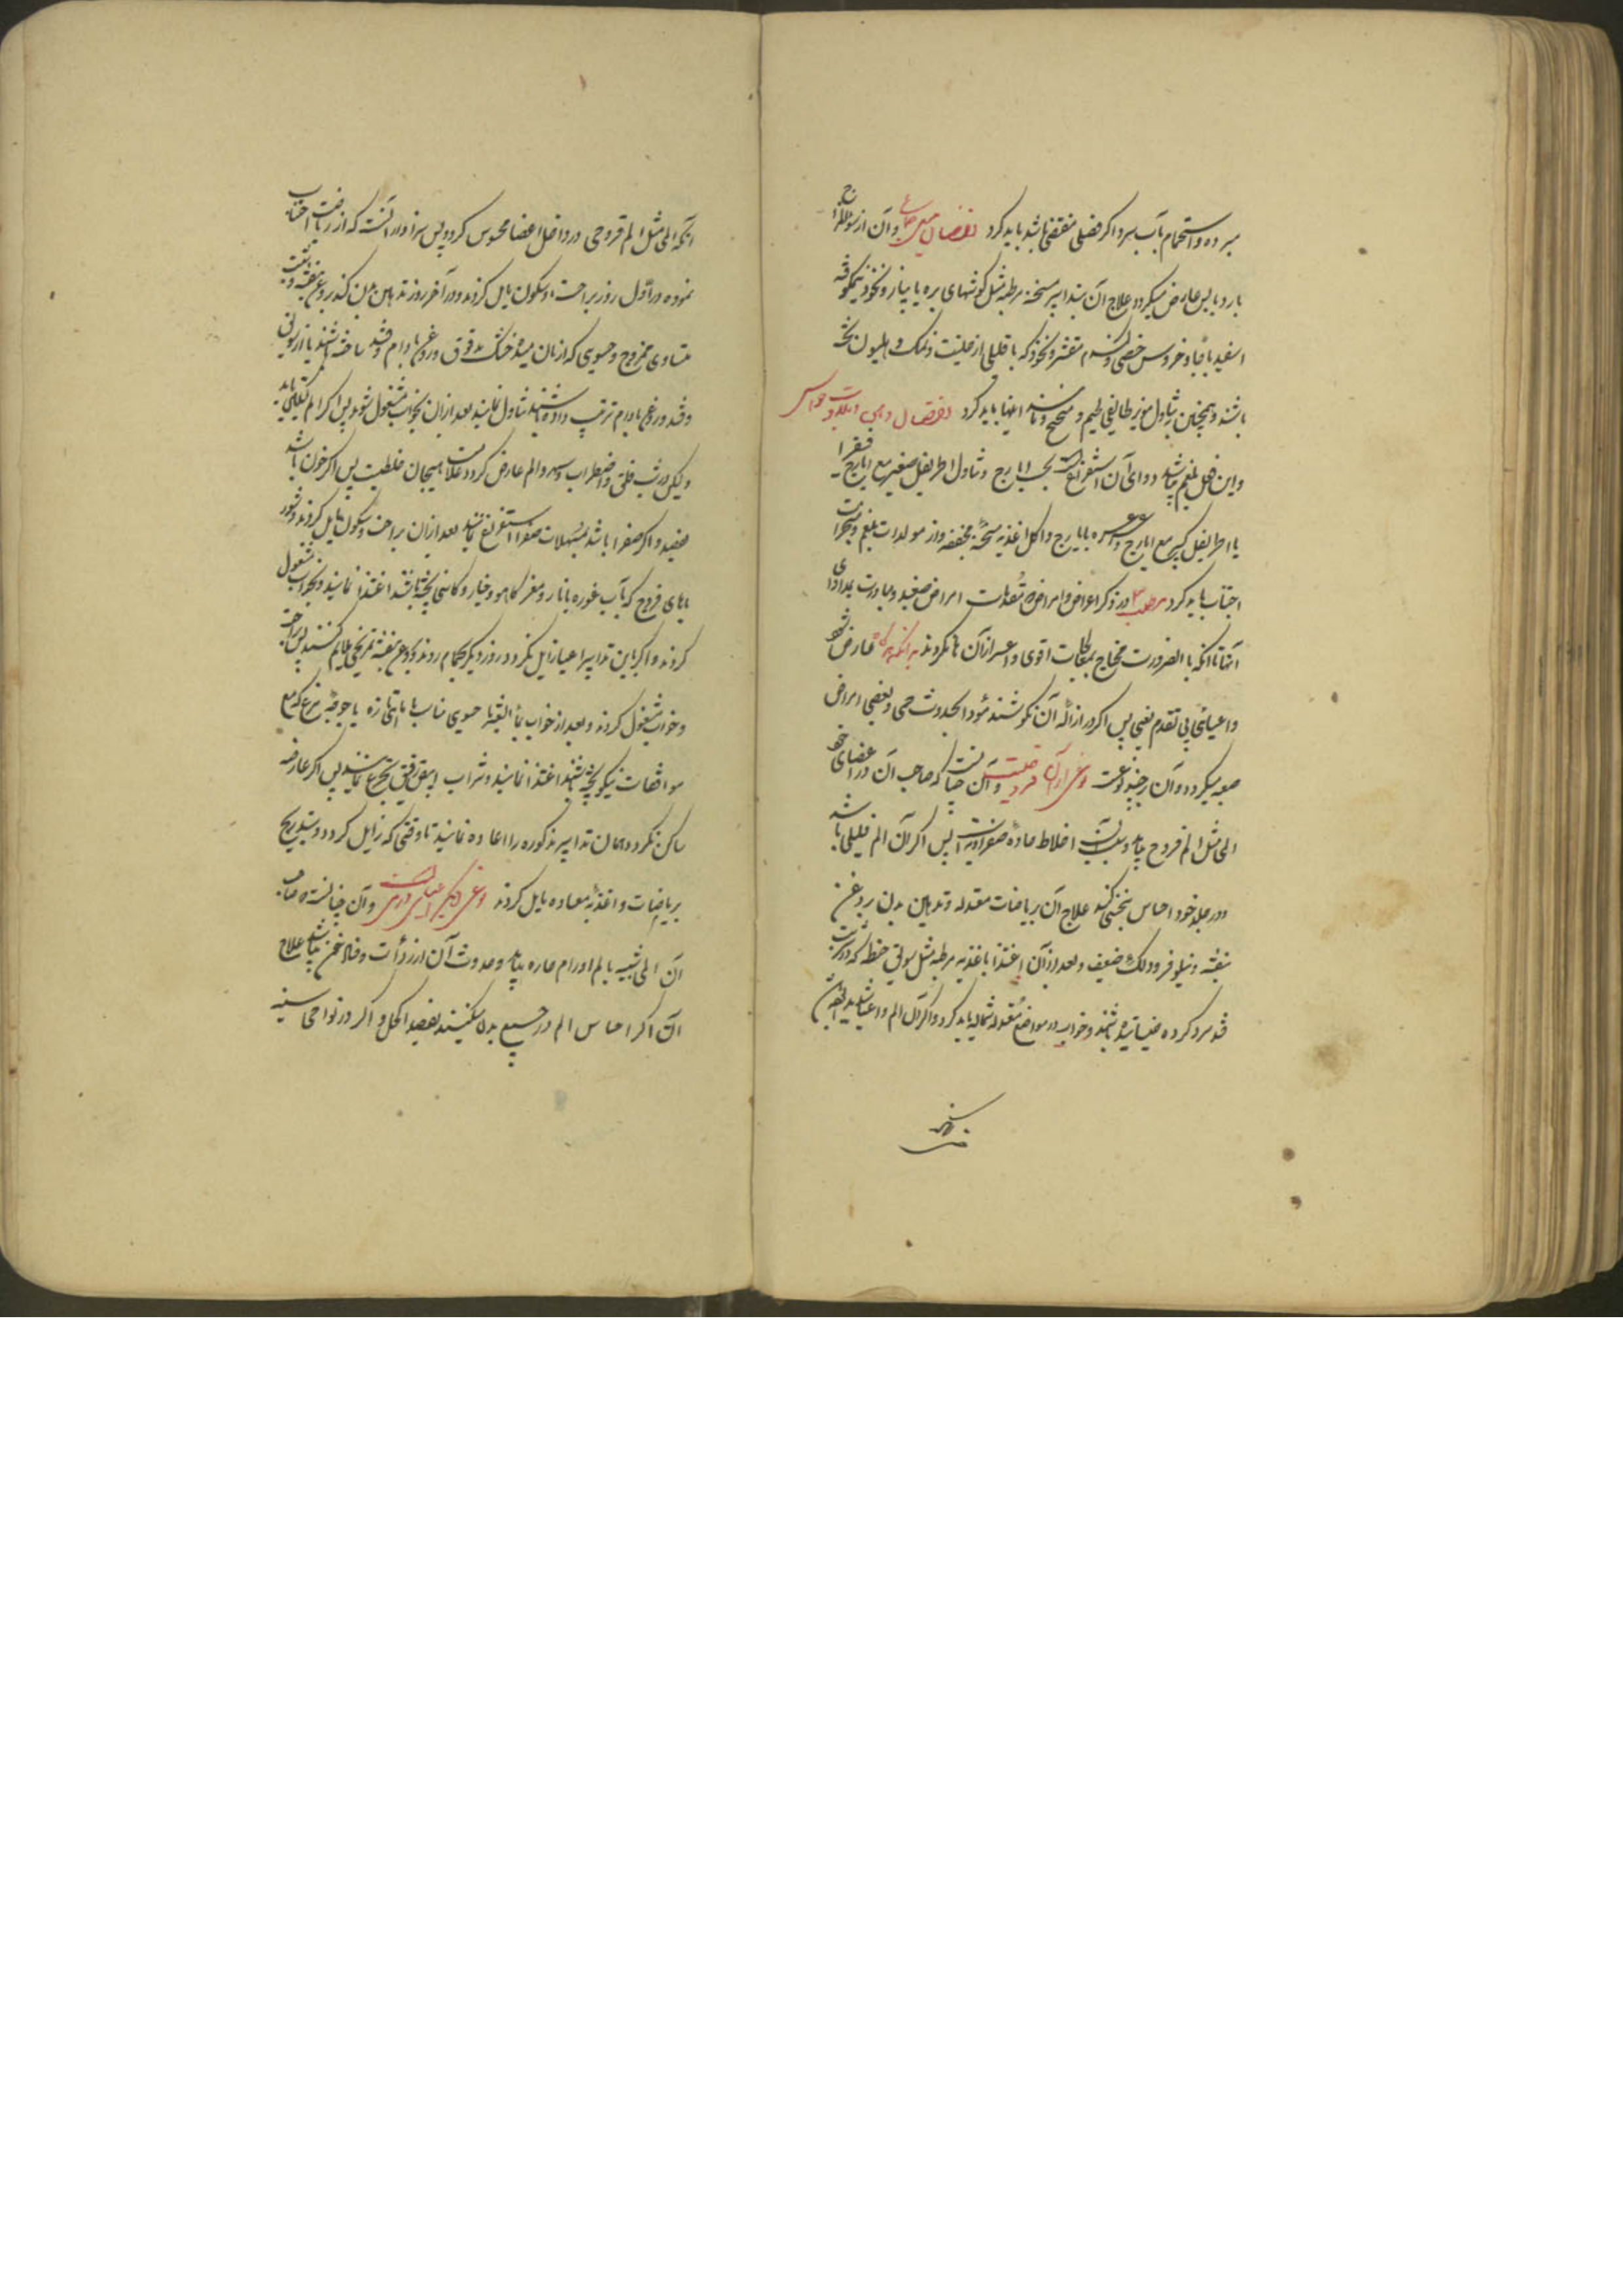 مبرده و استحمام بآب سرد اگر فصل مقتضی باشد باید کرد نقصان و آن از سوء مزاج
بارد یابس عارض میگردد علاج آن بتدابیر مسخنه مرطبه مثل گوشتهای بره یا پیاز و نخود نیمکوفته
اسفیدباجا و خروس خصی و گندم مقشر و نخود که با قلیلی از حلتیت و نمک و هلیون پخته
باشند و همچنین تناول مویز طایفی لحیم و مانند اینها باید کرد نقصان وهمی و بلادت حواس
و این فعل بلغم میباشد دوای آن استفراغ بحب ایارج و تناول اطریفل صغیر مع ایارج فیقرا
یا اطریفل کبیر مع ایارج و غرغره بایارج و اکل اغذیه مسخنه مجففه و از مولدات بلغم و مبخرات
اجتناب باید کرد مطلب در ذکر اعراض و امراض مقدمات امراض صعبه و مبادرت بمداوای
آنها تا آنکه بالضرورت محتاج بمعالجات اقوی و اعسر از آن نگردند به آنکه هرگاه عارض شود
و اعیائی بی تقدم تعبی پس اگر در ازاله آن نکوشند مؤدی بحدوث حمی و بعضی امراض
صعبه میگردد و آن بر چند نوعست نوعی از آن قروحیست و آن چنانست که صاحب آن در اعضای خود
المی مثل الم قروح بیابد و سبب آن اخلاط حاده صفراویست پس اگر آن الم قلیلی باشد
و در جلد خود احساس کند علاج آن بریاضات معتدله و تدهین بدن بروغن
بنفشه و نیلوفر و دلک ضعیف و بعد از آن اغتذا باغذیه مرطبه مثل سویق حنطه که در شربت
قند سرد کرده خیسانیده باشند و خواب در مواضع معتدله شمالیه باید کرد و اگر آن الم و اعیا
آنکه المی مثل الم قروحی در داخل اعضا محسوس گردد پس سزاوار آنست که از ریاضت اجتناب
نموده در اول روز براحت و سکون مایل گردند و در آخر روز تدهین بدن کنند بروغن بنفشه و زیت
متساوی ممزوج و حسوی که از نان میده خشک مدقوق و روغن بادام و قند ساخته باشند یا از سویق
و قند و روغن بادام ترتیب داده باشند تناول نمایند بعد از آن بخواب مشغول شوند پس اگر الم تسکین یابد
و لیکن در شب قلق و اضطراب و سهر و الم عارض گردد علامت هیجان خلطیست پس اگر خون باشد
فصد و اگر صفرا باشد بمسهلات صفرا استفراغ نمایند بعد از آن براحت و سکون مایل گردند و شور
باهای فروج که بآب غوره یا انار و مغز کاهو و خیار و کاسنی پخته باشند اغتذا نمایند و بخواب مشغول
گردند و اگر باین تدابیر اعیا زایل نگردد روز دیگر بحمام روند و بروغن بنفشه تمریخی ملایم کنند پس براحت
و خواب مشغول گردند و بعد از خواب حسوی مناسب یا ماهی تازه یا جوجه مرغ که مع
موافقات نیکو پخته باشند اغتذا نمایند و شراب ابیض رقیق تجرع نمایند پس اگر عارضه
ساکن نگردد همان تدابیر مذکوره را اعاده نمایند تا وقتی که زایل گردد و بتدریج
بریاضات و اغذیه معتاده مایل گردند نوعی دیگر اعیای ورمیست و آن چنانست که صاحب
آن المی شبیه بالم اورام حاره بیابد و حدوث آن از ردائت و فساد خون میباشد علاج
آن اگر احساس الم در جمیع بدن میکنند بفصد اکحل و اگر در نواحی سینه